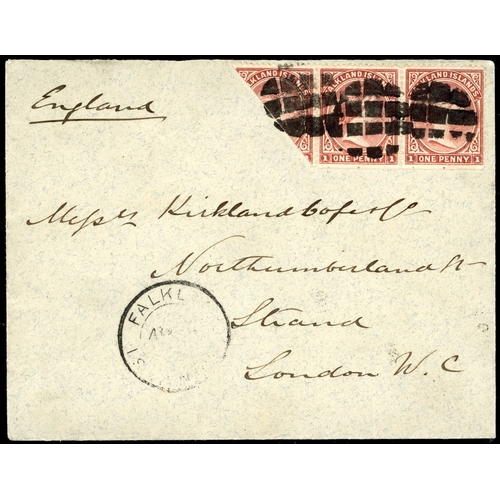 England
KLAND ISLANDS FALKLAND ISLANDS FALKLAND ISLANDS
1 1 ONE PENNY 1 1 ONE PENNY 1
Messrs Kirkland Cope & Co
Northumberland St
Strand
London W.C
FALKL